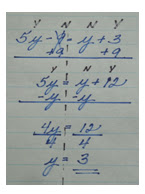 Y N N Y
5y - 9 = y + 3
+9 +9
Y N Y
5y = y + 12
-y -y
4y = 12
4 4
y = 3